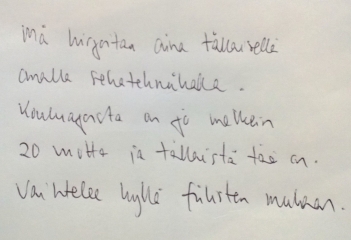 Mä kirjoitan aina tällaisella
omalla sekatekniikalla.
Kouluajoista on jo melkein
20 vuotta ja tällaistä tää on.
Vaihtelee kyllä fiilisten mukaan.